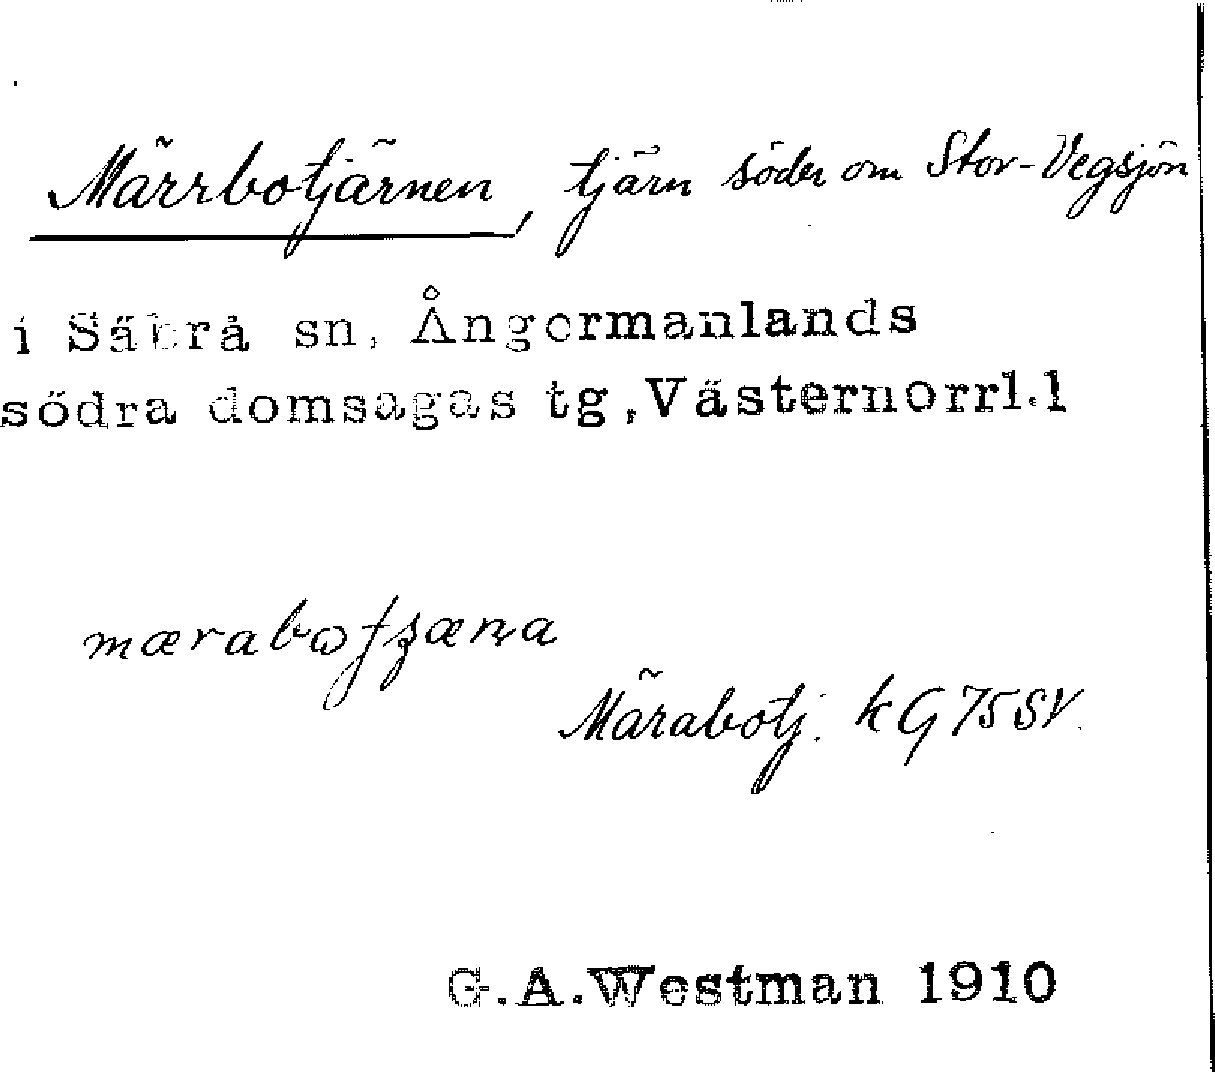 Märrbotjärnen, tjärn söder om Stor-Vegsjön
i Säbrå sn, Ångermanlands
södra domsagas tg, Västernorrl.l
Märabotj. kG75SV.
G.A.Westman 1910